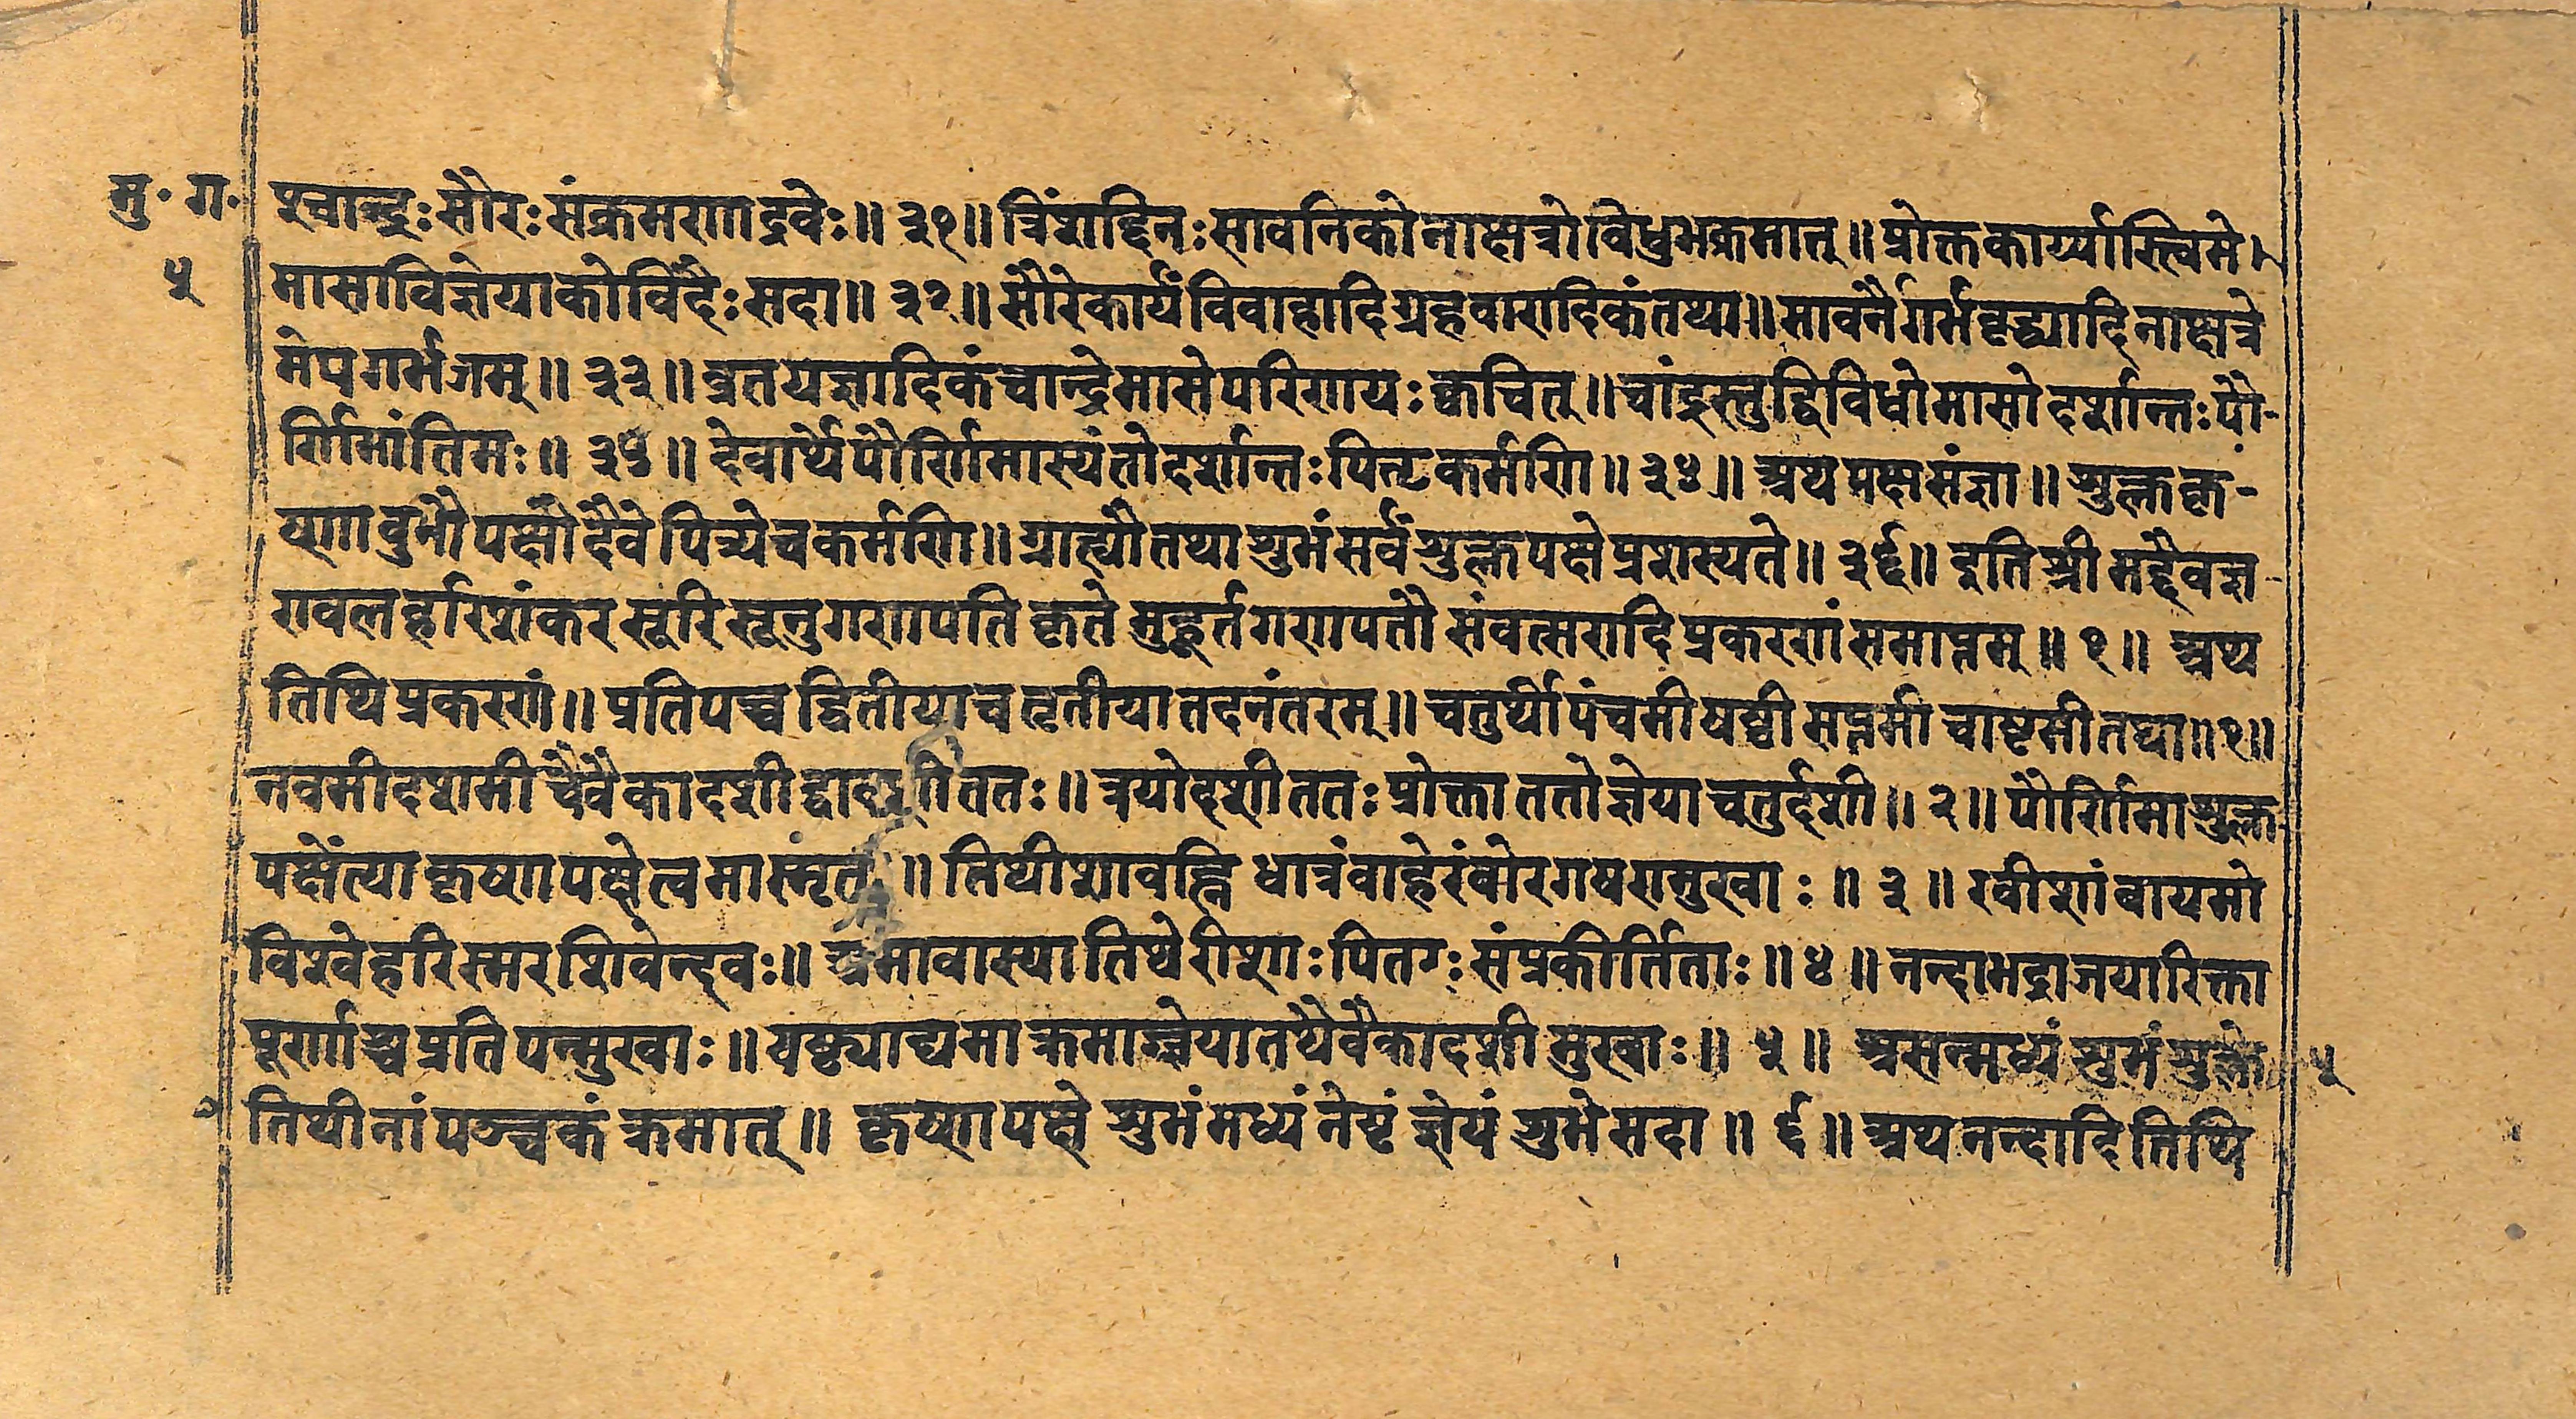 मु॰ ग॰
५
श्चान्द्रः सौरः संक्रमणाद्रवेः ॥ ३१ ॥ त्रिंशद्दिनः सावनिको नाक्षत्रो विधुभक्रमात् ॥ प्रोक्तकार्य्यास्त्विमे
मासा विज्ञेया कोविदैः सदा ॥ ३२ ॥ सौरे कार्यं विवाहादि ग्रहवारादिकं तथा ॥ सावनै गर्भवृद्ध्यादि नाक्षत्रे
मेघगर्भजम् ॥ ३३ ॥ व्रतयज्ञादिकं चान्द्रे मासे परिणयः क्वचित् ॥ चांद्रस्तु द्विविधो मासो दर्शान्तः पौ-
र्णिमांतिमः ॥ ३४ ॥ देवार्थे पौर्णिमास्यंतो दर्शान्तः पितृकर्मणि ॥ ३५ ॥ अथ पक्षसंज्ञा ॥ शुक्लकृ-
ष्णावुभौ पक्षौ दैवे पित्र्ये च कर्मणि ॥ ग्राह्यौ तथा शुभं सर्वं शुक्लपक्षे प्रशस्यते ॥ ३६ ॥ इति श्रीमद्दैवज्ञ-
रावलहरिशंकरसूरिसूनुगणपतिकृते मुहूर्तगणपतौ संवत्सरादिप्रकरणं समाप्तम् ॥ १ ॥ अथ
तिथिप्रकरणं ॥ प्रतिपच्च द्वितीया च तृतीया तदनंतरम् ॥ चतुर्थी पंचमी षष्ठी सप्तमी चाष्टमी तथा ॥ १ ॥
नवमी दशमी चैवैकादशी द्वादशी ततः ॥ त्रयोदशी ततः प्रोक्ता ततो ज्ञेया चतुर्दशी ॥ २ ॥ पौर्णिमा शुक्ल
पक्षेंत्या कृष्णपक्षे त्वमा स्मृता ॥ तिथीशा वह्निधात्रंबाहेरंबोरगषण्मुखाः ॥ ३ ॥ रवीशांबायमो
विश्वेहरिस्मरशिवेन्दवः ॥ अमावास्यातिथेरीशाः पितरः संप्रकीर्तिताः ॥ ४ ॥ नन्दा भद्रा जया रिक्ता
पूर्णाश्च प्रतिपन्मुखाः ॥ षष्ठ्याद्यमा क्रमाज्ज्ञेया तथैवैकादशीमुखाः ॥ ५ ॥ असन्मध्यं शुभं शुक्ले
५
तिथीनां पञ्चकं क्रमात् ॥ कृष्णपक्षे शुभं मध्यं नेष्टं ज्ञेयं शुभे सदा ॥ ६ ॥ अथ नन्दादितिथि